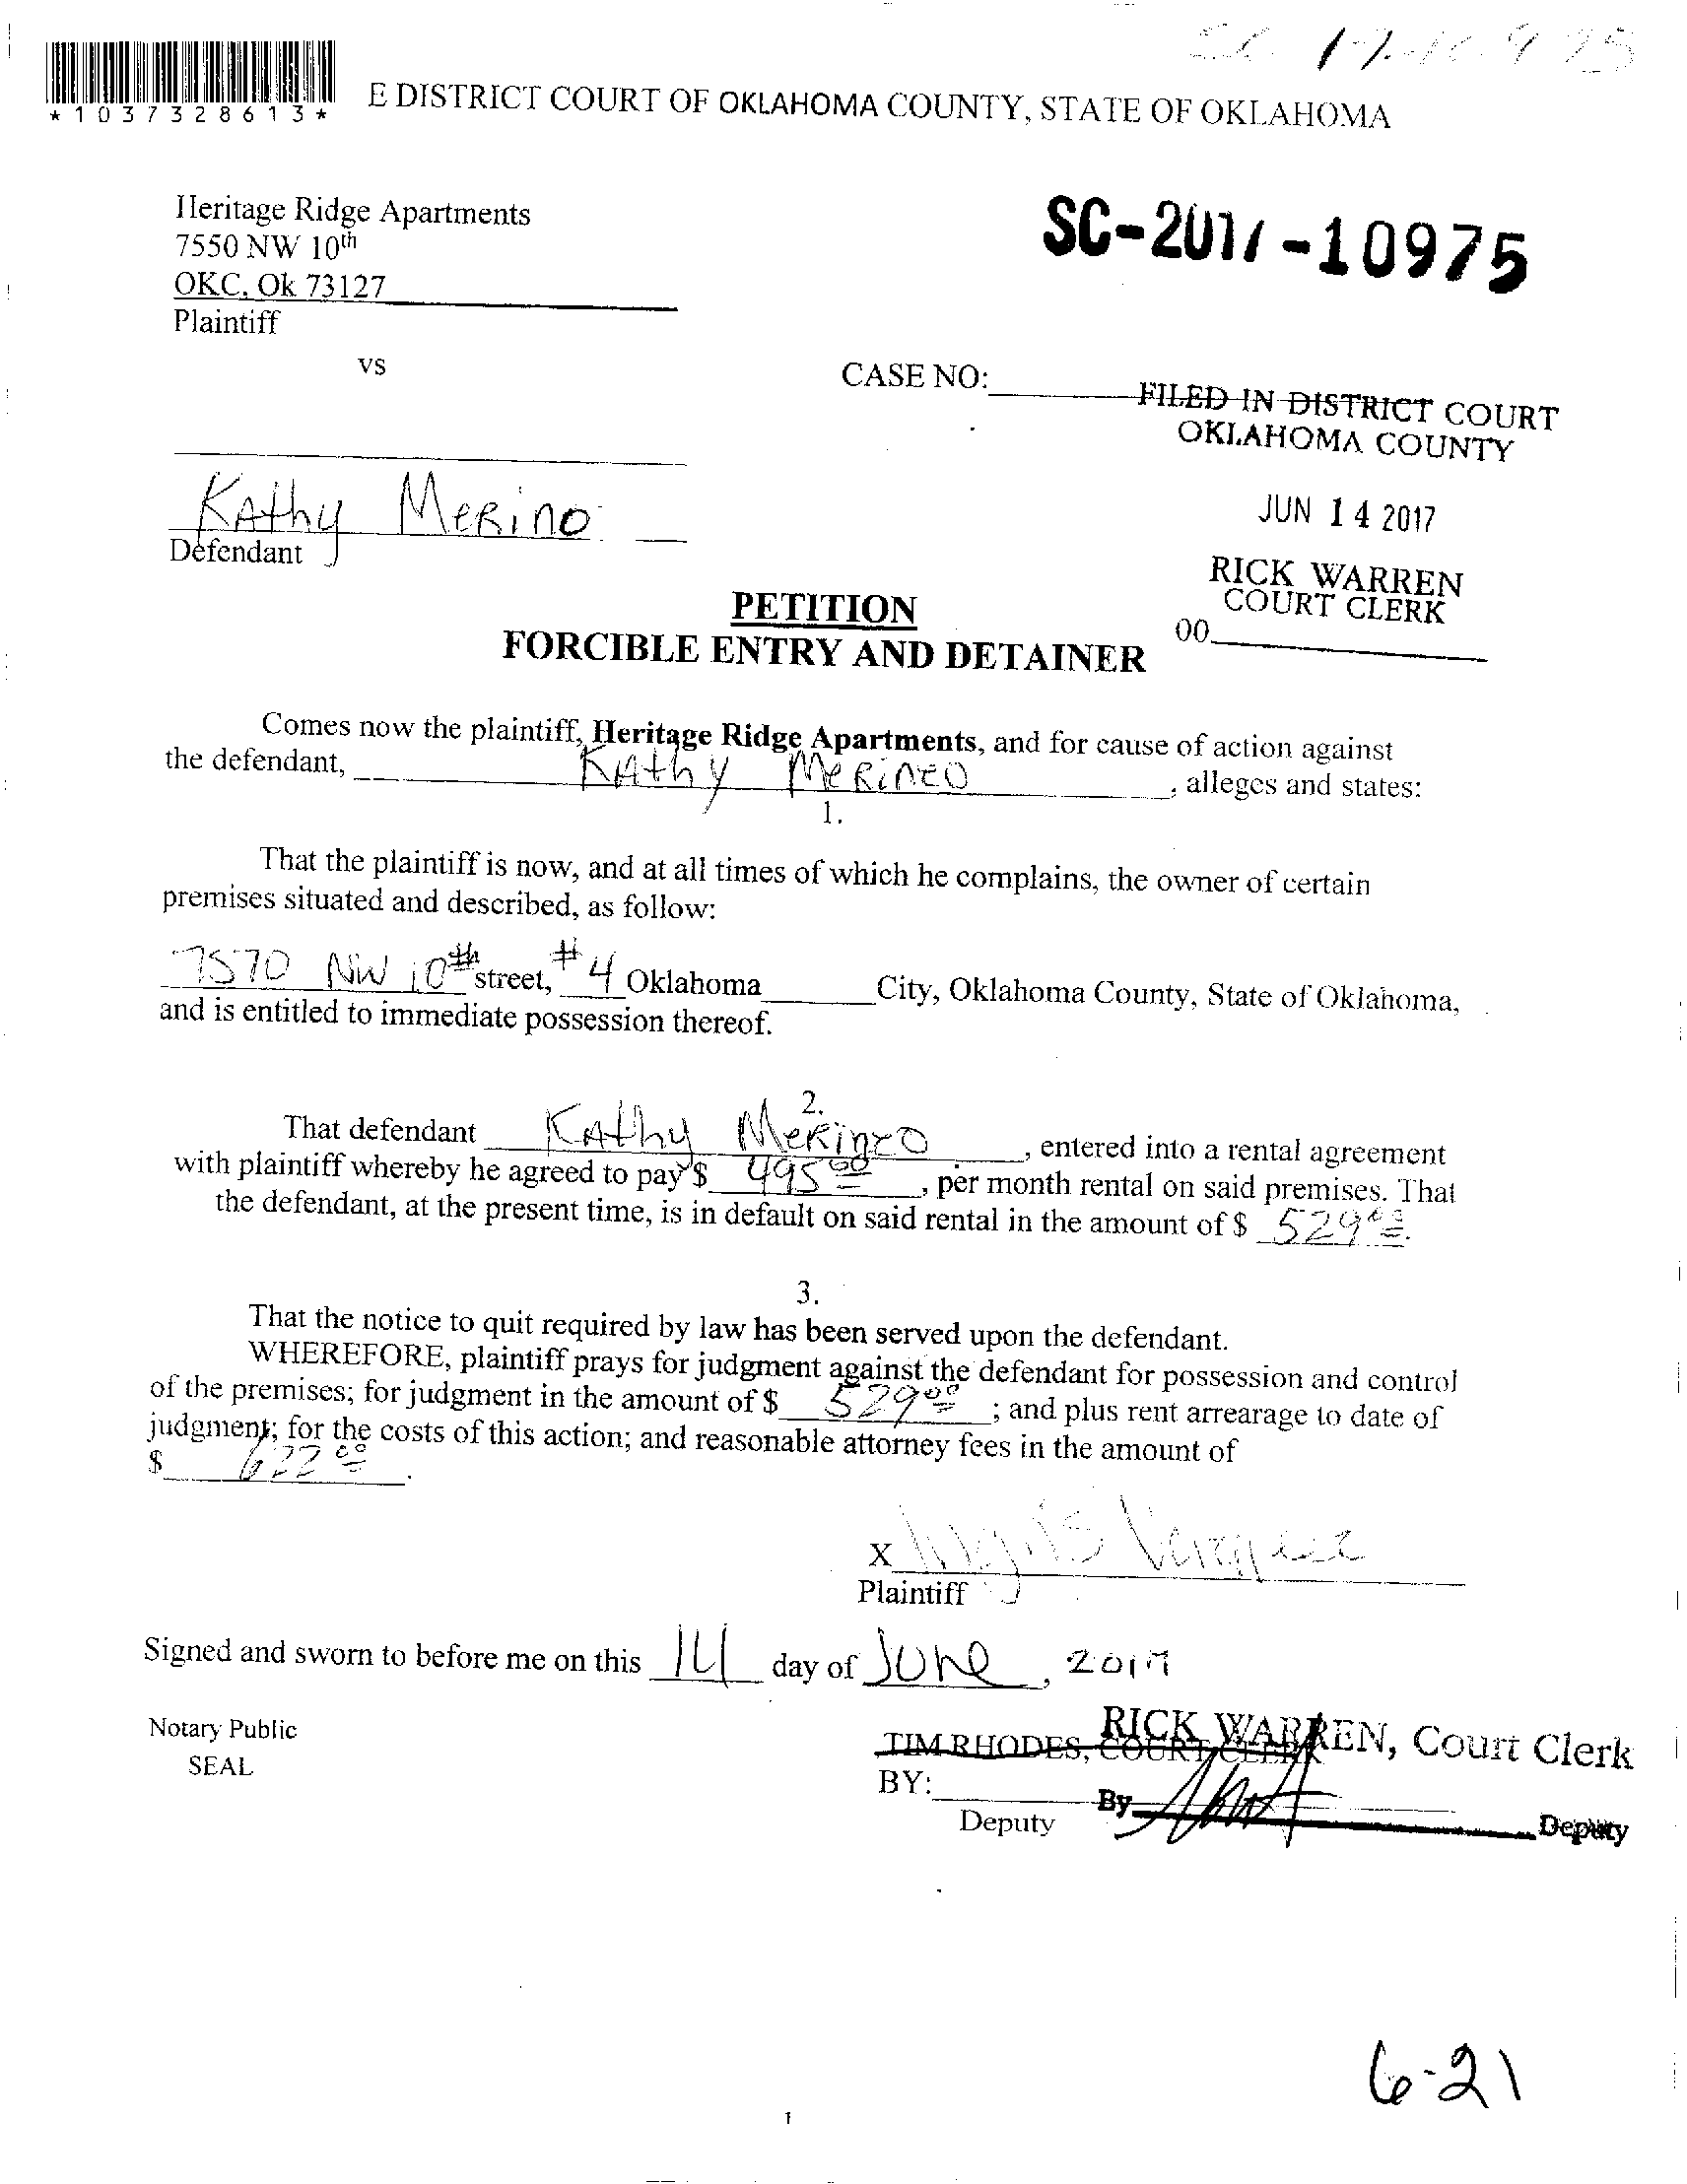 *1037328613*
E DISTRICT COURT OF OKLAHOMA COUNTY, STATE OF OKLAHOMA
Heritage Ridge Apartments
7550 NW 10th
OKC, Ok 73127
Plaintiff
SC-2017-10975
vs
CASE NO:
FILED IN DISTRICT COURT
OKLAHOMA COUNTY
JUN 14 2017
RICK WARREN
COURT CLERK
00
Kathy Merino
Defendant
PETITION
FORCIBLE ENTRY AND DETAINER
Comes now the plaintiff, Heritage Ridge Apartments, and for cause of action against
the defendant, Kathy Merino, alleges and states:
1.
That the plaintiff is now, and at all times of which he complains, the owner of certain
premises situated and described, as follow:
7570 NW 10th street, #4 Oklahoma City, Oklahoma County, State of Oklahoma,
and is entitled to immediate possession thereof.
2.
That defendant Kathy Merino, entered into a rental agreement
with plaintiff whereby he agreed to pay $ 495 00, per month rental on said premises. That
the defendant, at the present time, is in default on said rental in the amount of $ 529 00.
3.
That the notice to quit required by law has been served upon the defendant.
WHEREFORE, plaintiff prays for judgment against the defendant for possession and control
of the premises; for judgment in the amount of $ 529 00; and plus rent arrearage to date of
judgment; for the costs of this action; and reasonable attorney fees in the amount of
$ 622 00.
X
Plaintiff
Signed and sworn to before me on this 14 day of June, 2017
Notary Public
SEAL
TIM RHODES, COURT CLERK
RICK WARREN, Court Clerk
BY:
Deputy
By Deputy
6-21